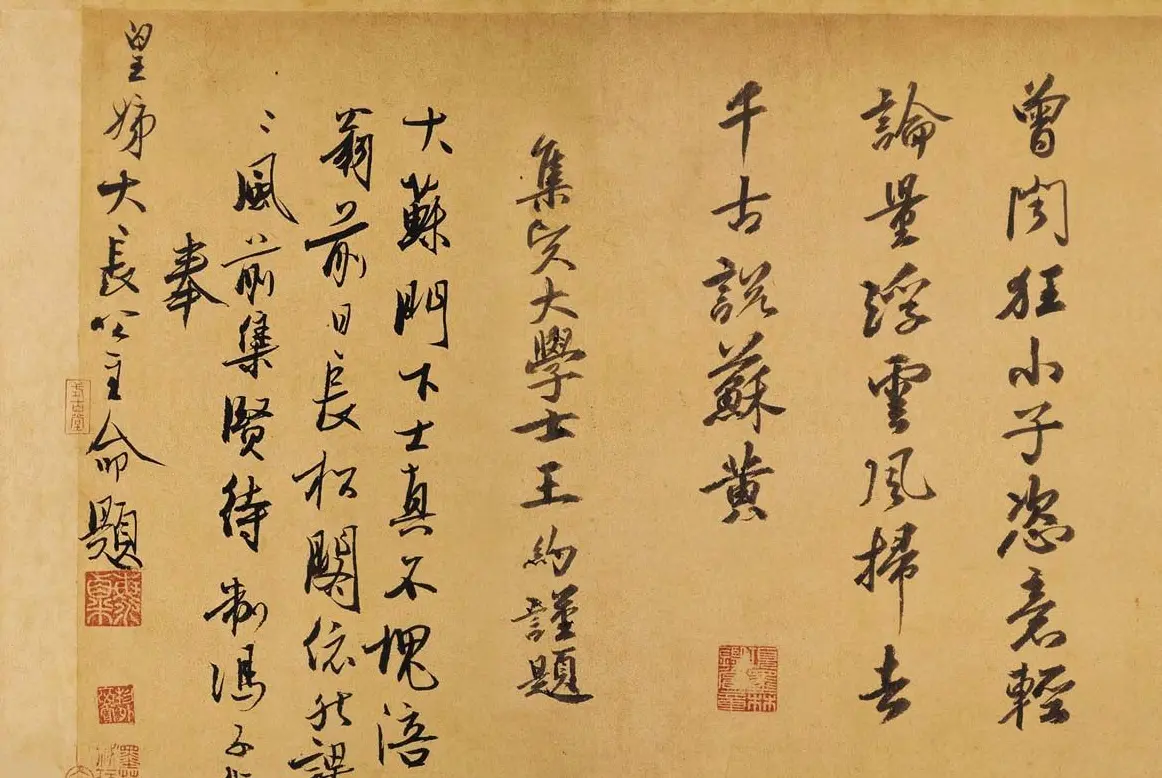 曾聞狂小子恣意輕
論量浮雲風掃去
千古說蘇黃
集賢大學士王約謹題
大蘇門下士真不愧涪
翁前日長松閣依然謖
〻風前集賢待制馮子
奉
皇姊大長公主命題
式古堂